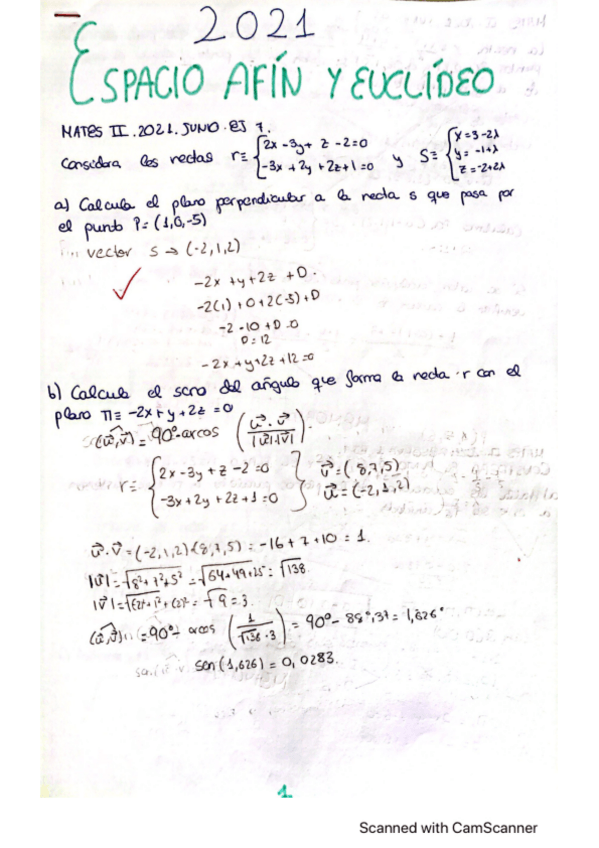 2021
ESPACIO AFÍN Y EUCLÍDEO
MATES II. 2021. JUNIO. EJ 7.
Considera las rectas r≡ { 2x-3y+z-2=0 -3x+2y+2z+1=0 y s≡ { x=3-2λ y=-1+λ z=-2+2λ
a) Calcula el plano perpendicular a la recta s que pasa por
el punto P=(1,0,-5)
vector s → (-2,1,2)
-2x+y+2z+D.
-2(1)+0+2(-5)+D
-2-10+D=0
D=12
-2x+y+2z+12=0
b) Calcula el seno del ángulo que forma la recta r con el
plano π≡ -2x+y+2z=0
(u⃗,v⃗)=90º-arcos (u⃗·v⃗ / |u⃗|·|v⃗|).
r≡ { 2x-3y+z-2=0 -3x+2y+2z+1=0 } v⃗=(8,7,5) u⃗=(-2,1,2)
u⃗·v⃗=(-2,1,2)·(8,7,5)=-16+7+10=1.
|v⃗|=√8²+7²+5²=√64+49+25=√138.
|v⃗|=√(-2)²+1²+(2)²=√9=3.
(u⃗,v⃗)=90º- arcos (1 / √138·3)=90º-88º,37=1,626º
sen(1,626)=0,0283.
1
Scanned with CamScanner